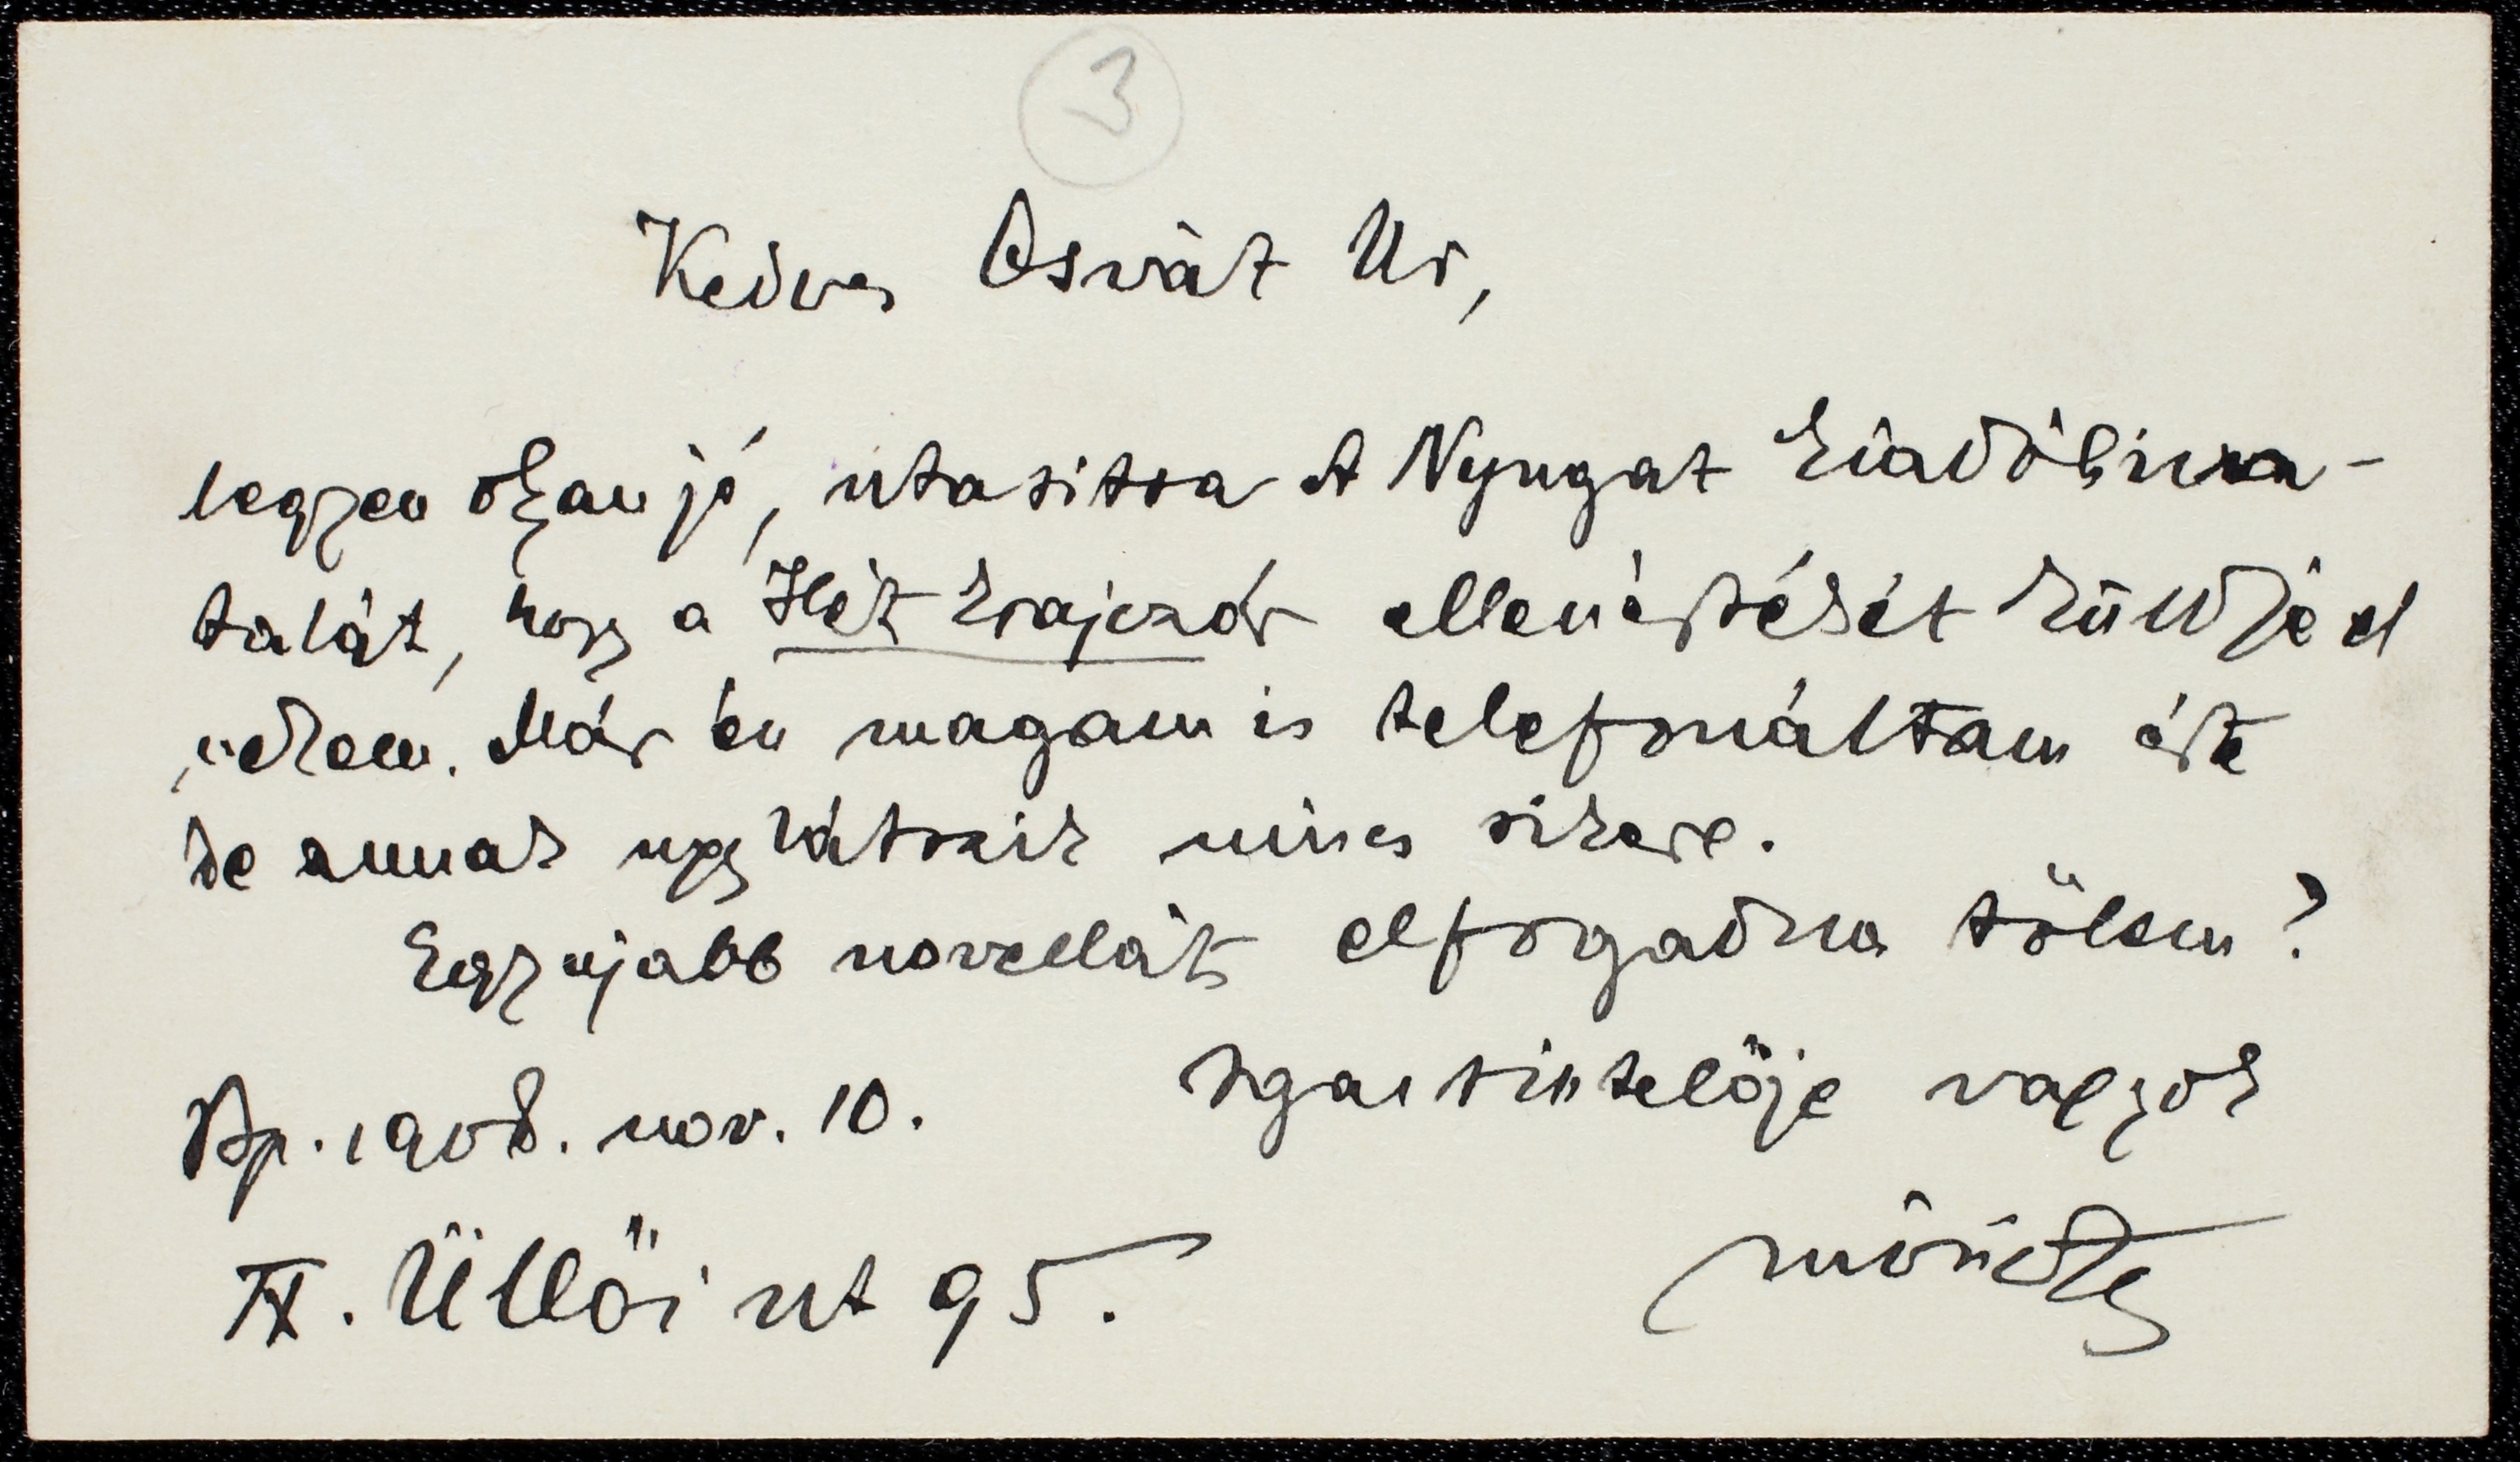 3
Kedves Osvát Ur,
legyen olyan jó, utasitsa A Nyugat kiadóhiva-
talát, hogy a Hét krajczár ellenértékét küldje el
nekem. Már én magam is telefonáltam érte
de annak ugy látszik nincs sikere.
Egy ujabb novellát elfogadna tölem?
Igaz tisztelöje vagyok
Bp. 1908. nov. 10.
Móricz Zs
IX. Üllöi ut 95.